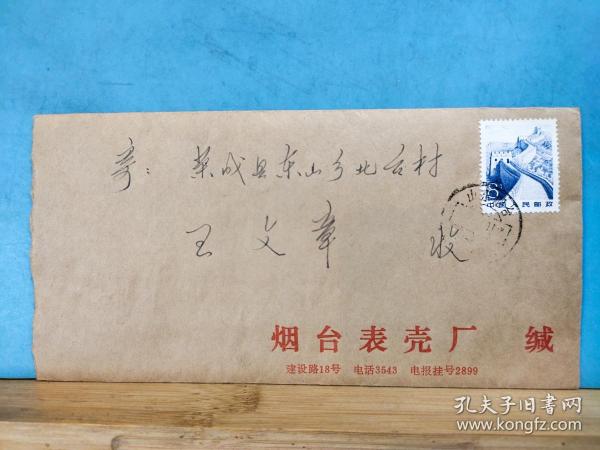 寄：荣成县东山乡北台村
王文章 收
8
中国人民邮政
烟台表壳厂 缄
建设路18号 电话3543 电报挂号2899
孔夫子旧书网
www.kongfz.com